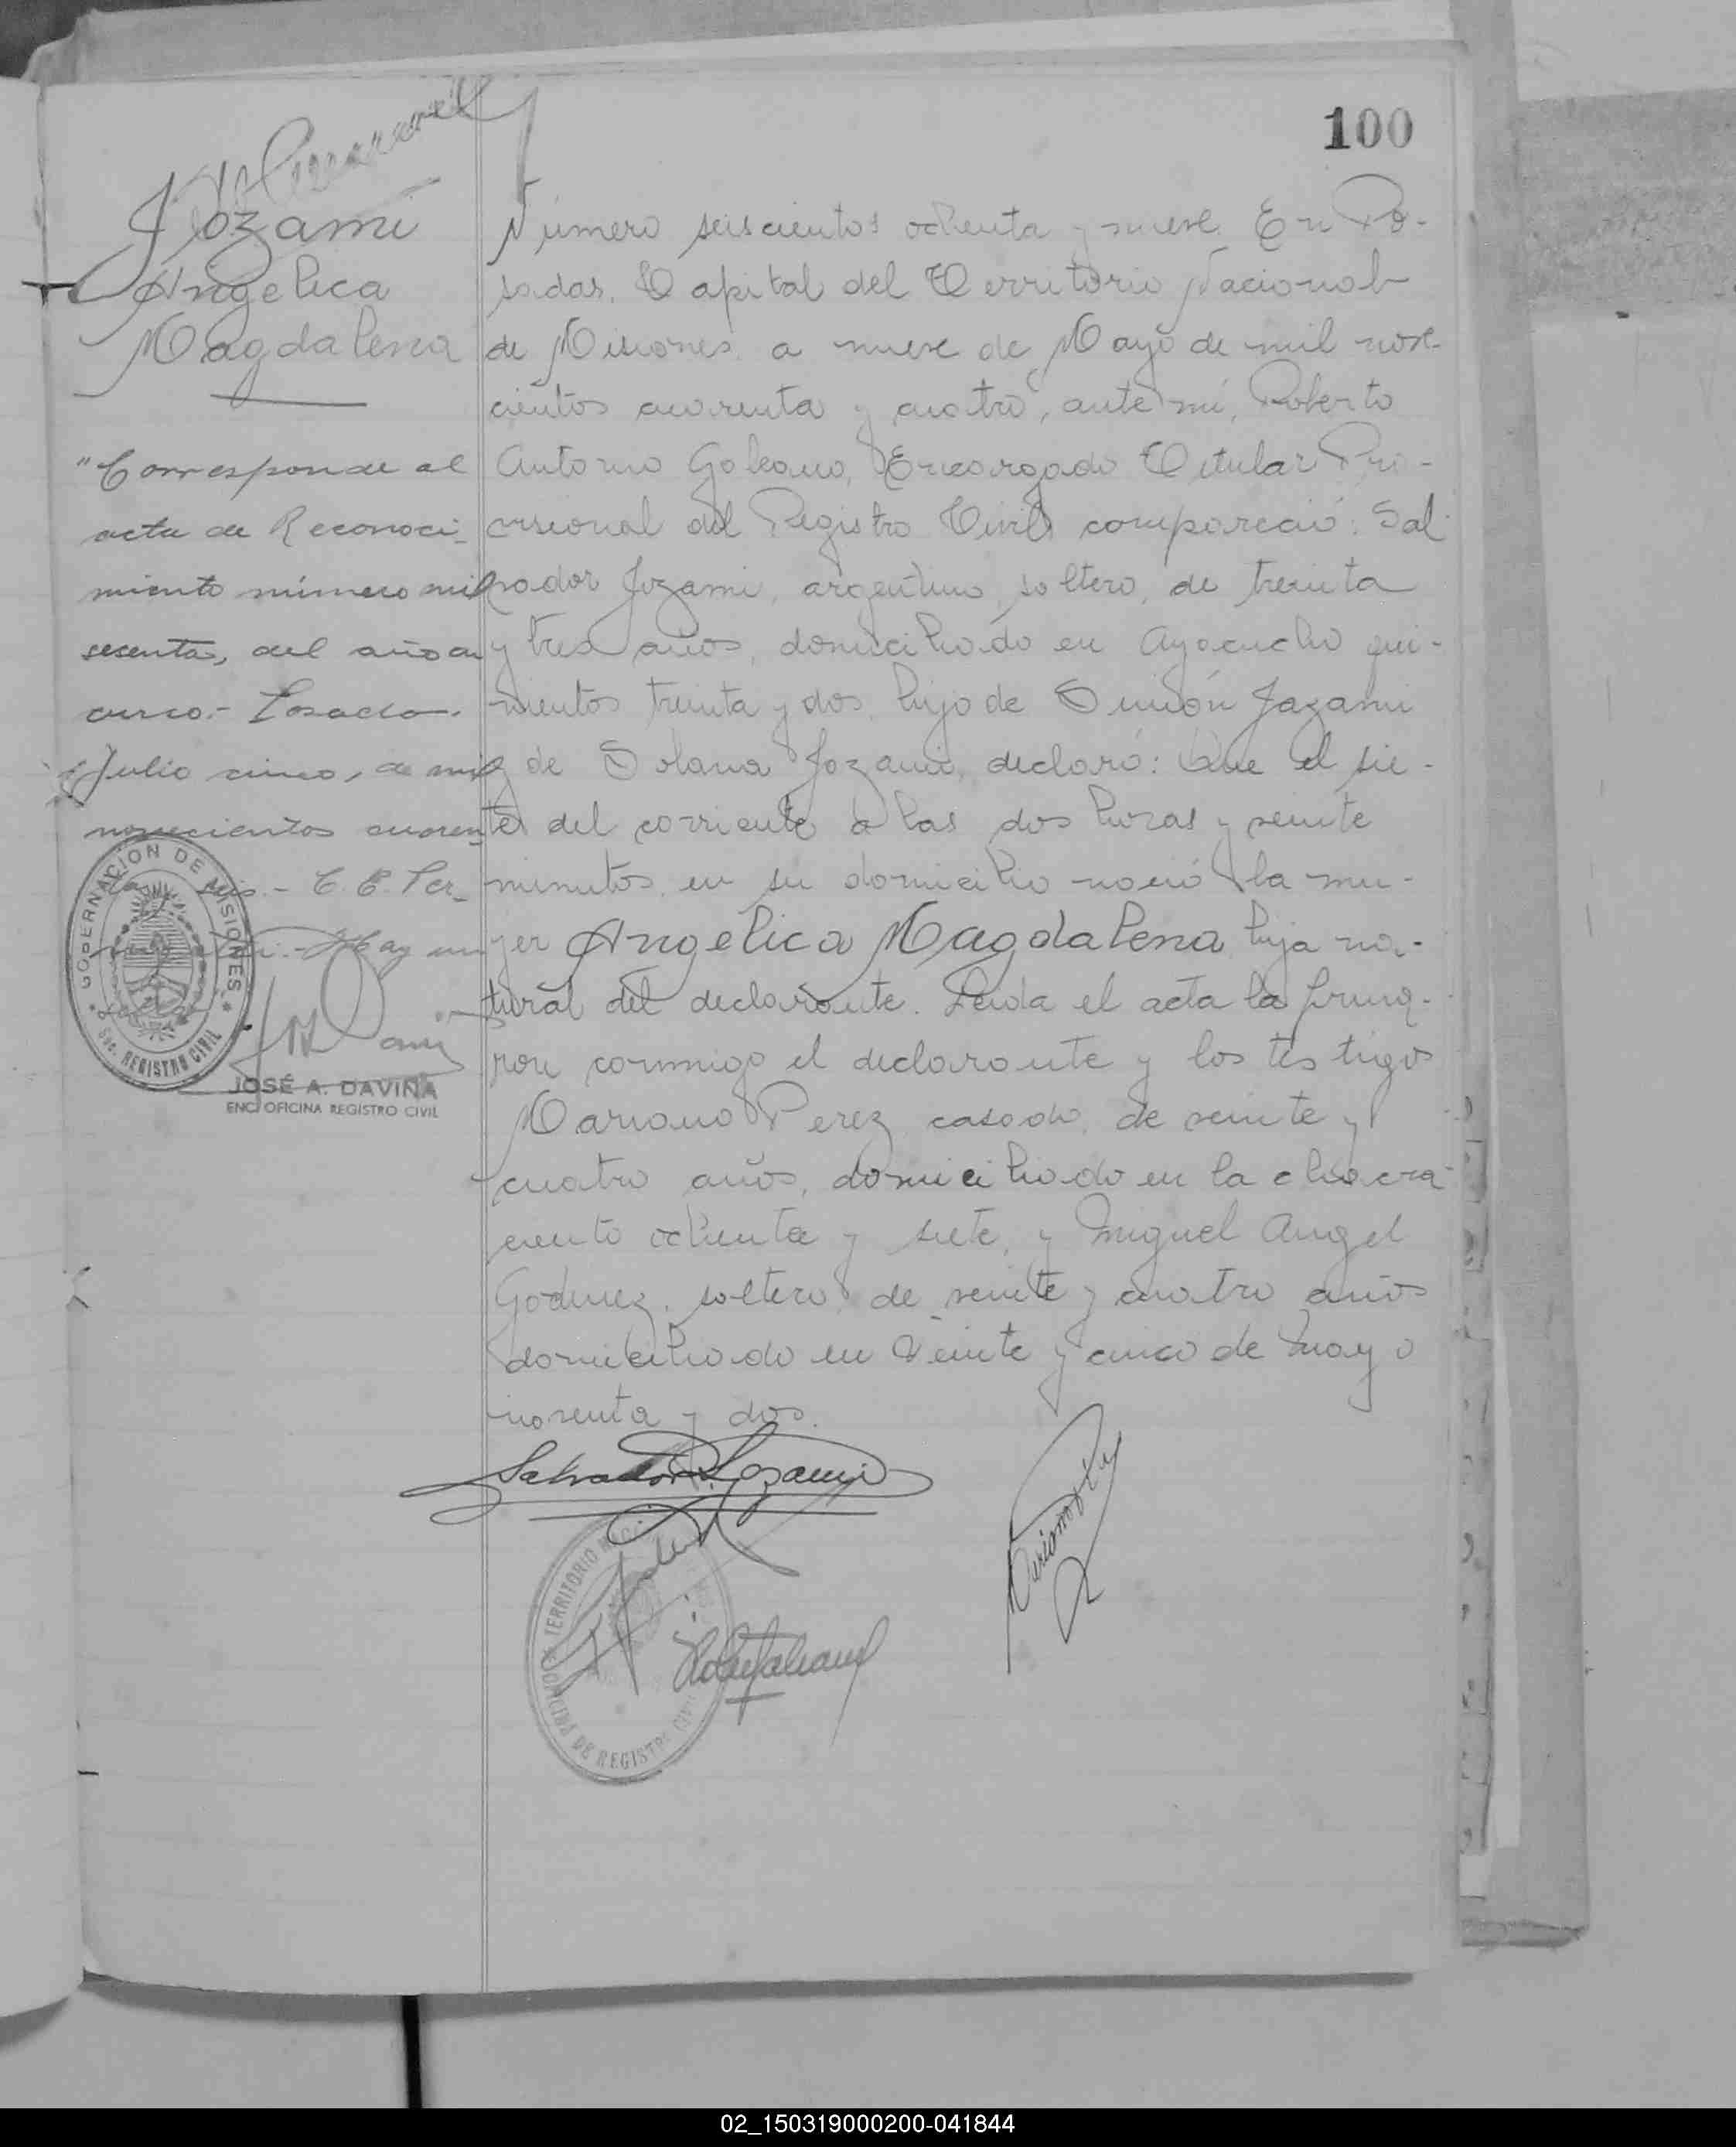 100
Jozami
Angelica
Magdalena
"Corresponde al
acta de Reconoci-
miento número mil
sesenta, del año en
curso.- Posadas.
Julio cinco, de mil
novecientos cuaren-
ta seis.- C. E. Per-
Hay un
sello
GOBERNACION DE MISIONES
SEC. REGISTRO CIVIL
JOSÉ A. DAVIÑA
ENC. OFICINA REGISTRO CIVIL
Número seiscientos ochenta y nueve. En Po-
sadas. Capital del Territorio Nacional
de Misiones. a nueve de Mayo de mil nove-
cientos cuarenta y cuatro, ante mí, Roberto
Antonio Galeano, Encargado Titular Pro-
visional del Registro Civil, compareció: Sal-
vador Jozami, argentino, soltero, de treinta
y tres años, domiciliado en Ayacucho qui-
nientos treinta y dos, hijo de Simón Jozami
y de Solana Jozami, declaró: Que el sie-
te del corriente a las dos horas y veinte
minutos, en su domicilio nació la mu-
jer Angelica Magdalena, hija na-
tural del declarante. Leida el acta la firma-
ron conmigo el declarante y los testigos
Mariano Perez, casado, de veinte y
cuatro años, domiciliado en la chacra
ciento ochenta y siete, y Miguel Angel
Godinez, soltero, de veinte y cuatro años
domiciliado en Veinte y cinco de Mayo
noventa y dos.
Salvador Jozami
Mariano Perez
TERRITORIO
OFICINA DE REGISTRO CIVIL
02_150319000200-041844